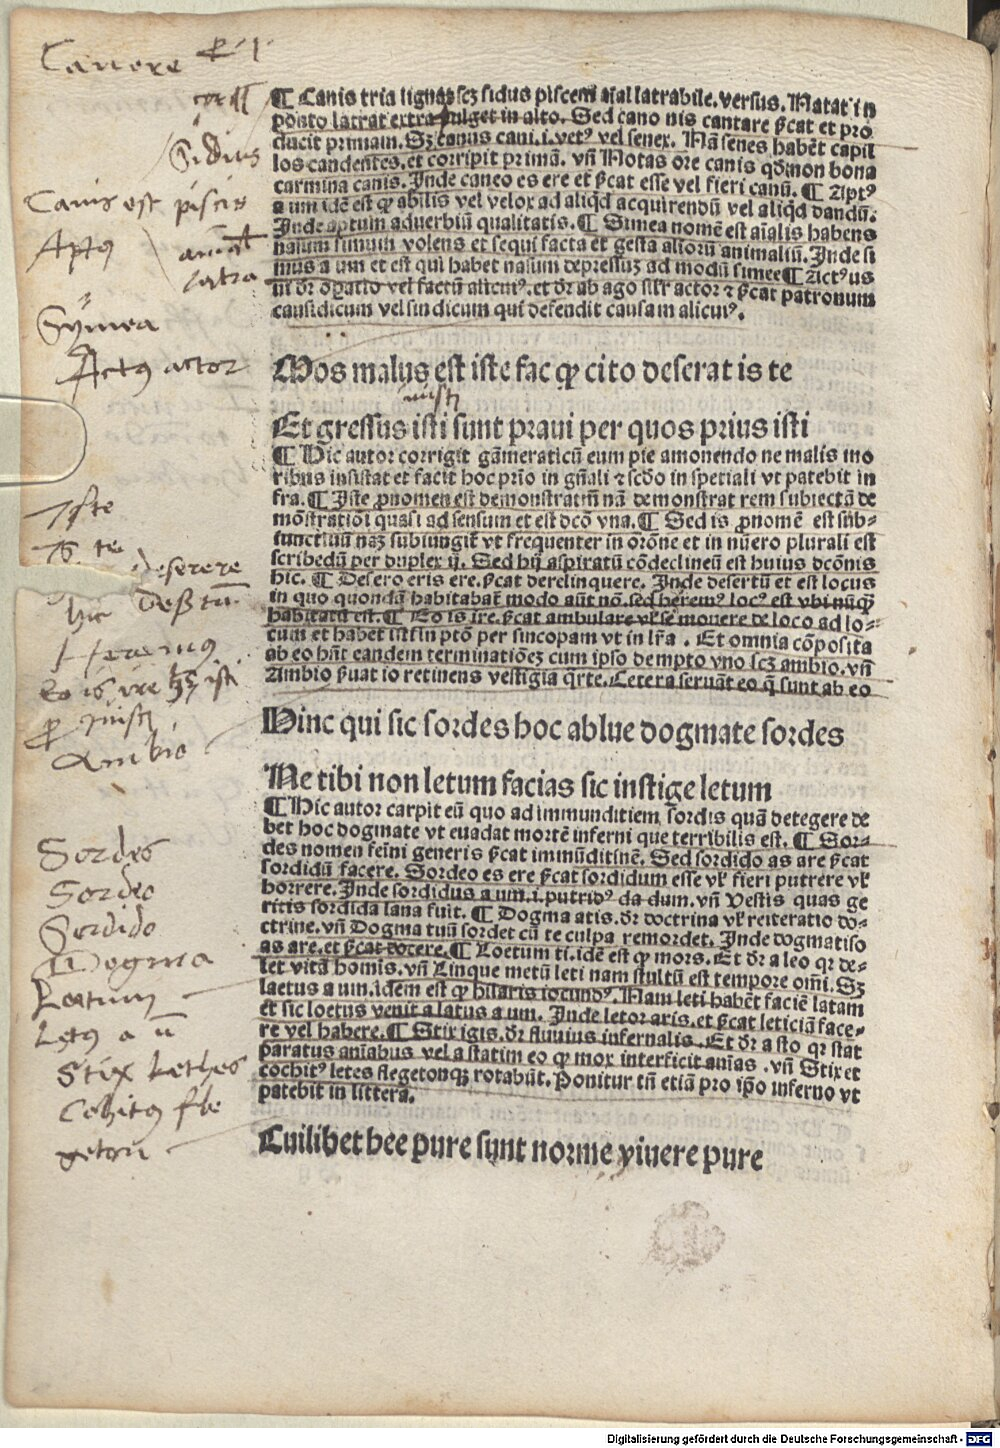 Canere
¶ Canis tria signat scz sidus piscem aial latrabile. versus. Natat in
ponto latrat extra fulget in alto. Sed cano nis cantare ꝓcat et pro
ducit primam. Sz canus cani .i. vetꝰ vel senex. Nā senes habēt capil
los candentes. et corripit primā. vn̄ Notas ore canis qd̄ non bona
carmina canis. Inde caneo es ere et ꝓcat esse vel fieri canū. ¶ Aptꝰ
a um idē est ꝙ abilis vel velox ad aliqd acquirendū vel aliqd dandū.
Inde aptum aduerbiū qualitatis. ¶ Simea nomē est aialis habens
nasum simum volens et sequi facta et gesta aliorū animaliū. Inde si
mus a um et est qui habet nasum depressuz ad modū simee ¶ Actꝰ us
ui dr̄ opatio vel factū alicuiꝰ. et dr̄ ab ago silr actor ⁊ ꝓcat patronum
causidicum vel sindicum qui defendit causam alicuiꝰ.
Mos malus est iste fac ꝙ cito deserat is te
Et gressus isti sunt praui per quos prius isti
¶ Hic autor corrigit gāmeraticū eum pie amonendo ne malis mo
ribus insistat et facit hoc prīo in gn̄ali ⁊ scdo in spetiali vt patebit in
fra. ¶ Iste ꝓnomen est demonstratiū nā demonstrat rem subiectā de
mōstrationi quasi ad sensum et est dcō vna. ¶ Sed is ꝓnomē est sub⸗
iunctiuū naz subiungit vt frequenter in orōne et in nūero plurali est
scribedū per duplex ij. Sed hij aspiratū cōdeclineū est huius dcōnis
hic. ¶ Desero eris ere. ꝓcat derelinquere. Inde desertū et est locus
in quo quondā habitabāt modo aūt nō. sed heremꝰ locꝰ est vbi nūqꝫ
habitatū est. ¶ Eo is ire. ꝓcat ambulare vl se mouere de loco ad lo⸗
cum et habet istſin ptō per sincopam vt in lr̄a . Et omnia cōposita
ab eo hn̄t eandem terminationez cum ipso dempto vno scz ambio. vn̄
Ambio ꝓuat io retinens vestigia qrte. Cetera seruāt eo q̄ sunt ab eo
Hinc qui sic sordes hoc ablue dogmate sordes
Ne tibi non letum facias sic instige letum
¶ Hic autor carpit eū quo ad immunditiem sordis quā detegere de
bet hoc dogmate vt euadat mortē inferni que terribilis est. ¶ Sor⸗
des nomen feīni generis ꝓcat immūditinē. Sed sordido as are ꝓcat
sordidū facere. Sordeo es ere ꝓcat sordidum esse vl fieri putrere vl
horrere. Inde sordidus a um .i. putridꝰ da dum. vn̄ Vestis quas ge
ritis sordida lana fuit. ¶ Dogma atis. dr̄ doctrina vl reiteratio do⸗
ctrine. vn̄ Dogma tuū sordet cū te culpa remordet. Inde dogmatiso
as are. et ꝓcat docere. ¶ Loetum ti. idē est ꝙ mors. Et dr̄ a leo qr de⸗
let vitā homīs. vn̄ Linque metū leti nam stultū est tempore omi. Sz
laetus a um. idem est ꝙ hilaris iocundꝰ. Nam leti habēt faciē latam
et sic loetus venit a latus a um. Inde letor aris. et ꝓcat leticiā face⸗
re vel habere. ¶ Stix igis. dr̄ fluuius infernalis. Et dr̄ a sto qr stāt
paratus aniabus vel a statim eo ꝙ mox interficit anias . vn̄ Stix et
cochitꝰ letes flegetonqꝫ rotabūt. Ponitur tn̄ etiā pro ipo inferno vt
patebit in littera.
Cuilibet hee pure sunt norme viuere pure
Sidus
Canis est piscis
Aptꝰ
latra
Symea
Actꝰ actor
Iste
deserere
hic
Heremꝰ
Ambio
Sordes
Sordeo
Sordido
Dogma
Loetum
Letꝰ a ū
Stix Lethes
Cohitꝰ fle
geton
Digitalisierung gefördert durch die Deutsche Forschungsgemeinschaft - DFG